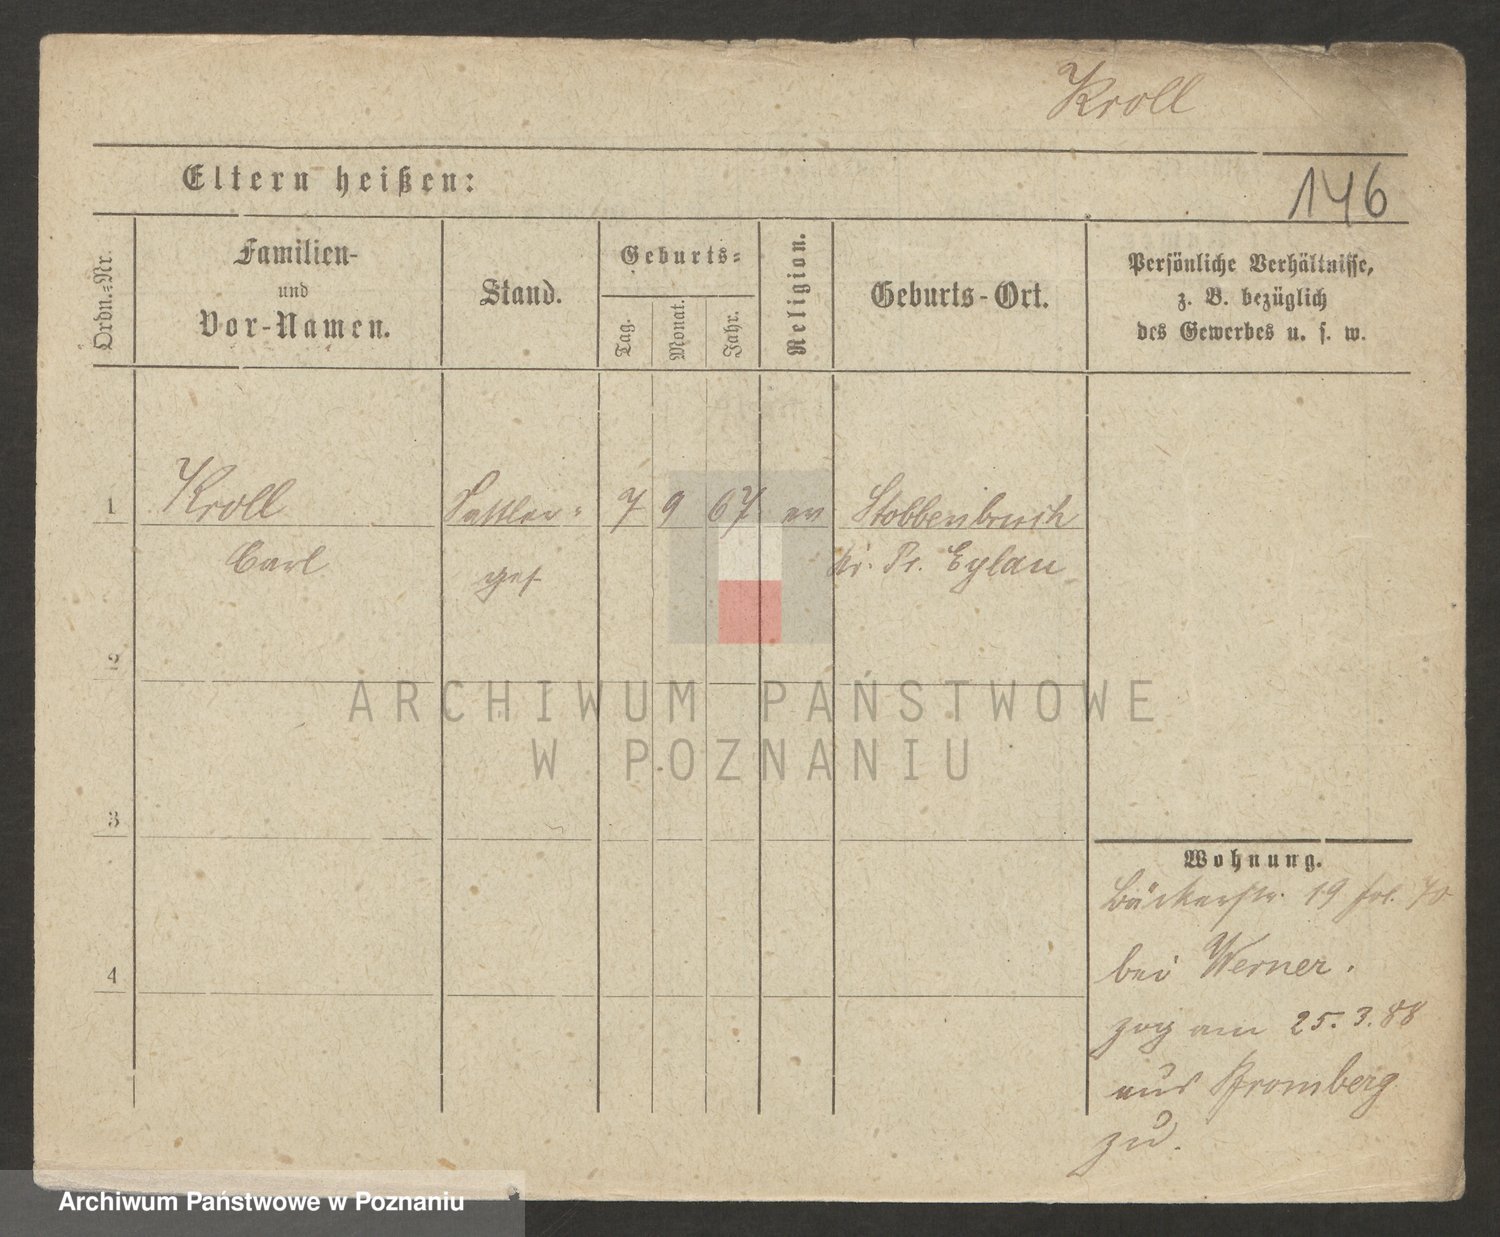 Kroll
Eltern heißen:
146
Ordn.-Nr.
Familien-
und
Vor-Namen.
Stand.
Geburts-
Tag.
Monat.
Jahr.
Religion.
Geburts-Ort.
Persönliche Verhältnisse,
z. B. bezüglich
des Gewerbes u. s. w.
1 Kroll Sattler- 7 9 67 ev Stobbenbruch
Carl ges. Kr. Pr. Eylau
2
ARCHIWUM PAŃSTWOWE
W POZNANIU
3
Wohnung.
Bäckerstr. 19 fol. 70
bei Werner.
4
zog am 25.3.88
aus Bromberg
zu.
Archiwum Państwowe w Poznaniu